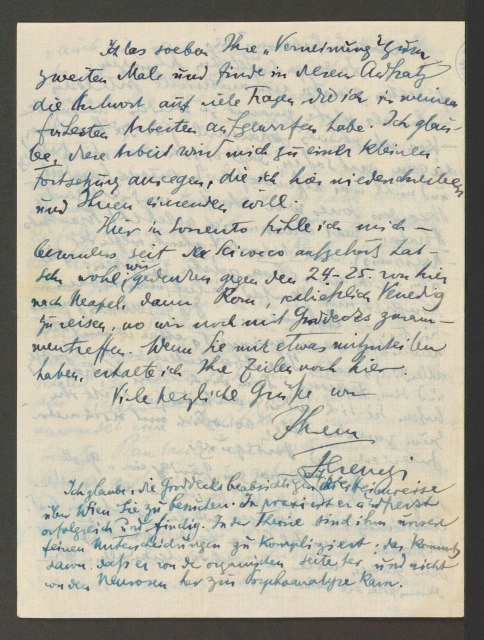 Ich las soeben Ihre „Verneinung" zum
zweiten Male und finde in diesem Aufsatz
die Antwort auf viele Fragen die ich in meinen
frühesten Arbeiten aufgeworfen habe. Ich glau-
be, diese Arbeit wird mich zu einer kleinen
Fortsetzung anregen, die ich hier niederschreiben
und Ihnen einsenden will.
Hier in Sorrento fühle ich mich –
besonders seit der Scirocco aufgehört hat –
sehr wohl; wir gedenken gegen den 24–25. von hier
nach Neapel, dann Rom, schließlich Venedig
zu reisen, wo wir noch mit Groddecks zusam-
mentreffen. Wenn Sie mir etwas mitzuteilen
haben, erhalte ich Ihre Zeilen noch hier.
Viele herzliche Grüße von
Ihrem
Ferenczi
Ich glaube, die Groddecks beabsichtigen
über Wien Sie zu besuchen. In praxi ist er äußerst
erfolgreich und findig. In der Theorie sind ihm unsere
feinen Unterscheidungen zu kompliziert; das kommt
davon, daß er von der organischen Seite her und nicht
von den Neurosen her zur Psychoanalyse kam.